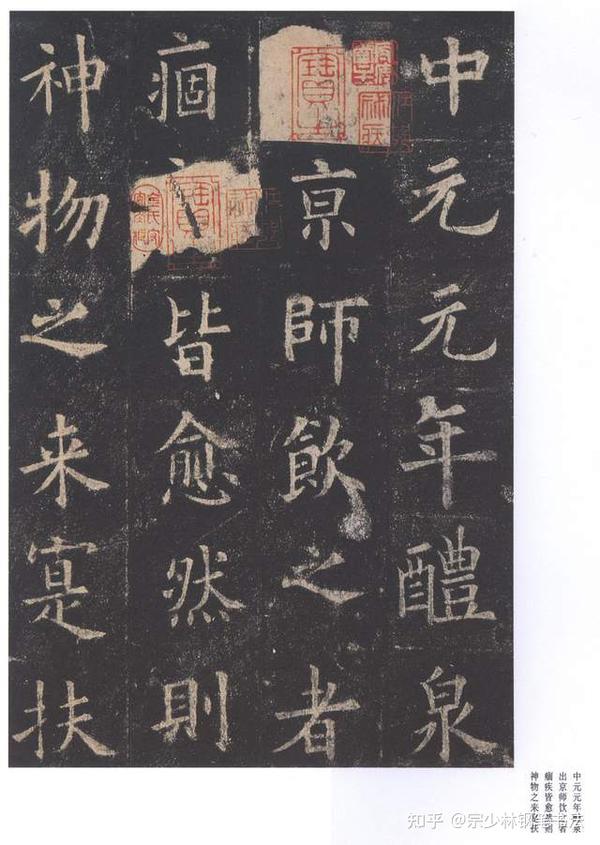 中元元年醴泉
亰師飲之者
痼皆愈然則
神物之来寔扶
中元元年泉
出京师饮者
痼疾皆愈则
神物之来扶
知乎 @宗少林钢笔书法